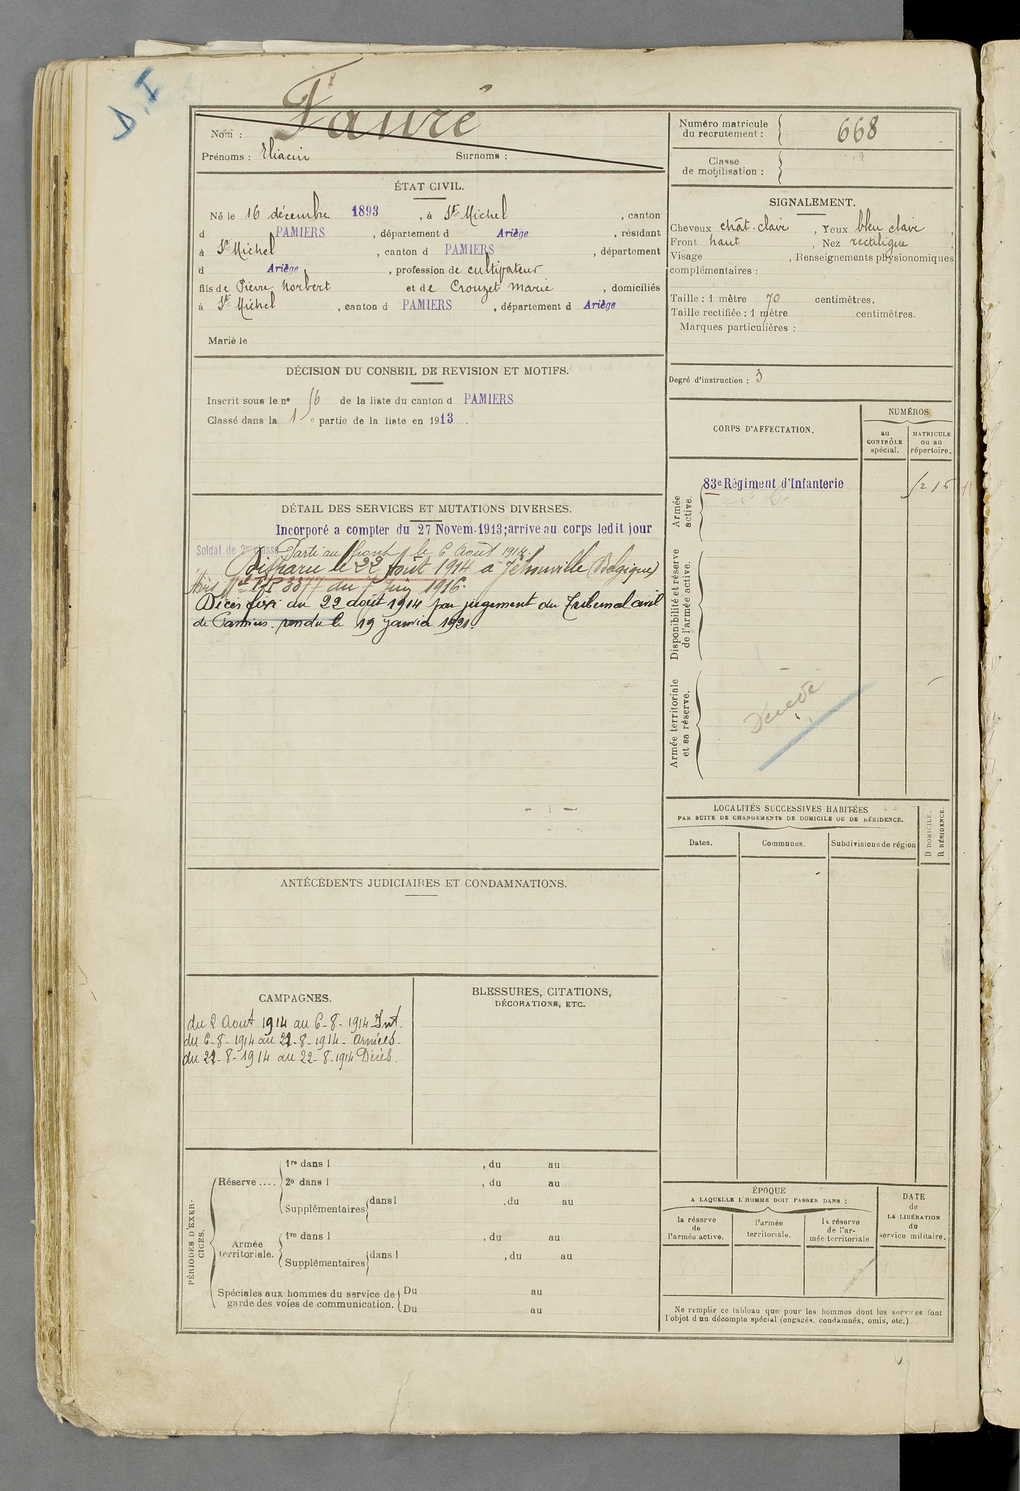 D.I
Fauré
Nom :
Prénoms : Eliacin Surnoms :
Numéro matricule du recrutement : 668
Classe de mobilisation :
ÉTAT CIVIL.
Né le 16 décembre 1893, à St Michel, canton
d PAMIERS, département d Ariège, résidant
à St Michel, canton d PAMIERS, département
d Ariège, profession de cultivateur
fils de Pierre Norbert et de Crouzet Marie, domiciliés
à St Michel, canton d PAMIERS, département d Ariège
Marié le
SIGNALEMENT.
Cheveux chât. clair, Yeux bleu clair,
Front haut, Nez rectiligne
Visage , Renseignements physionomiques
complémentaires :
Taille : 1 mètre 70 centimètres.
Taille rectifiée : 1 mètre centimètres.
Marques particulières :
Degré d'instruction : 3
DÉCISION DU CONSEIL DE REVISION ET MOTIFS.
Inscrit sous le n° 56 de la liste du canton d PAMIERS
Classé dans la 1 e partie de la liste en 1913.
CORPS D'AFFECTATION.
NUMÉROS
au CONTRÔLE spécial.
MATRICULE ou au répertoire.
Armée active.
83e Régiment d'Infanterie
Disponibilité et réserve de l'armée active.
Armée territoriale et sa réserve.
DÉTAIL DES SERVICES ET MUTATIONS DIVERSES.
Incorporé a compter du 27 Novem. 1913; arrive au corps ledit jour
Soldat de 2e classe Parti au front le 6 Août 1914.
Disparu le 22 août 1914 à Jehonville (Belgique)
du 7 Juin 1916.
Décès fixé au 22 août 1914 par jugement du Tribunal civil
de Pamiers rendu le 19 janvier 1921.
LOCALITÉS SUCCESSIVES HABITÉES
PAR SUITE DE CHANGEMENTS DE DOMICILE OU DE RÉSIDENCE.
Dates. Communes. Subdivisions de région
D DOMICILE.
R RÉSIDENCE.
ANTÉCÉDENTS JUDICIAIRES ET CONDAMNATIONS.
CAMPAGNES.
du 2 Aout 1914 au 6-8-1914 Int.
du 6-8-1914 au 22-8-1914. Armées.
du 22-8-1914 au 22-8-1914 Décès.
BLESSURES, CITATIONS,
DÉCORATIONS, ETC.
PÉRIODES D'EXERCICES.
Réserve ....
1re dans l , du au
2e dans l , du au
Supplémentaires dans l , du au
Armée territoriale.
1re dans l , du au
Supplémentaires dans l , du au
Spéciales aux hommes du service de
garde des voies de communication.
Du au
Du au
ÉPOQUE
A LAQUELLE L'HOMME DOIT PASSER DANS :
la réserve de l'armée active.
l'armée territoriale.
la réserve de l'armée territoriale
DATE de LA LIBÉRATION du service militaire.
Ne remplir ce tableau que pour les hommes dont les services font
l'objet d'un décompte spécial (engagés, condamnés, omis, etc.)